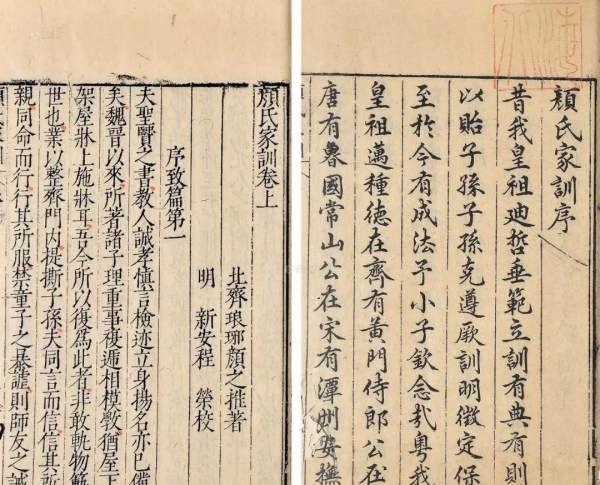 顏氏家訓序
昔我皇祖迪哲垂範立訓有典有則
以貽子孫子孫克遵厥訓明徵定保
至於今有成法予小子欽念哉粵我
皇祖邁種德在齊有黃門侍郎公在
唐有魯國常山公在宋有潭州安撫
顏氏家訓卷上
北齊琅琊顏之推著
明 新安程 榮校
序致篇第一
夫聖賢之書教人誠孝慎言檢迹立身揚名亦已備
矣魏晉以來所著諸子理重事複遞相模斆猶屋下
架屋牀上施牀耳吾今所以復爲此者非敢軌物範
世也業以整齊門內提撕子孫夫同言而信信其所
親同命而行行其所服禁童子之暴謔則師友之誡